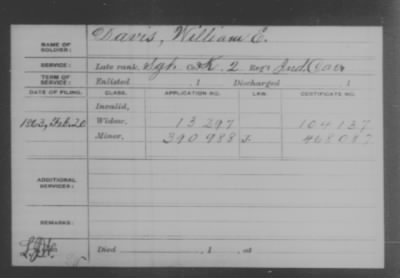 NAME OF SOLDIER: Davis, William E.
SERVICE: Late rank, Sgt. Co. K. 2 Reg't Ind. Cav
TERM OF SERVICE: Enlisted , 1 Discharged , 1
DATE OF FILING. CLASS. APPLICATION NO. LAW. CERTIFICATE NO.
Invalid,
1863, Feb. 20 Widow, 13 297 104 137
Minor, 390 988 468 087
ADDITIONAL SERVICES:
REMARKS:
Died , 1 , at